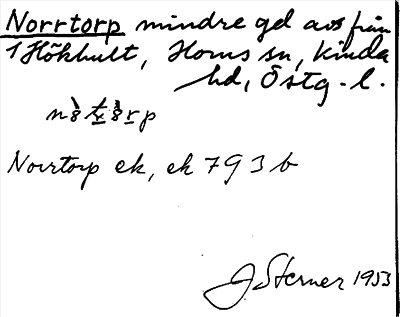 Norrtorp mindre gd avs från
1 Hökhult, Horns sn, Kinda
hd, Östg. l.
Norrtorp ek, ek 793 b
J Sterner 1953